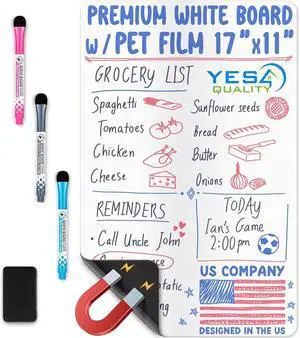 PREMIUM WHITE BOARD
w/PET FILM 17"x11"
GROCERY LIST
YES4
QUALITY
Spaghetti
Sunflower seeds
Tomatoes
Bread
Chicken
Butter
Cheese
Onions
REMINDERS
TODAY
• Call Uncle John
Ian's Game
2:00pm
US COMPANY
DESIGNED IN THE US